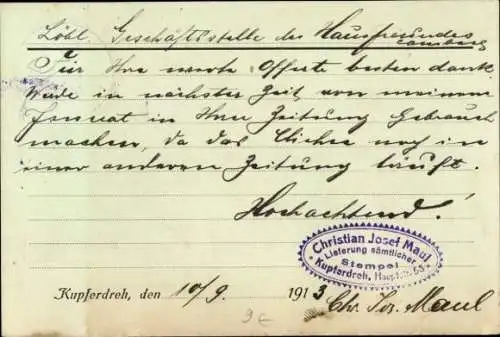 Löbl. Geschäftsstelle des Hausfreundes
Camberg
Für Ihre werte Offerte besten Dank
Werde in nächster Zeit von meinem
Inserat in Ihrer Zeitung Gebrauch
machen, da das Clichee noch in
einer anderen Zeitung läuft.
Hochachtend!
Christian Josef Maul
Lieferung sämtlicher
Stempel
Kupferdreh, Hauptstr. 53
Kupferdreh, den 10/9. 1913 Chr. Jos. Maul
9E